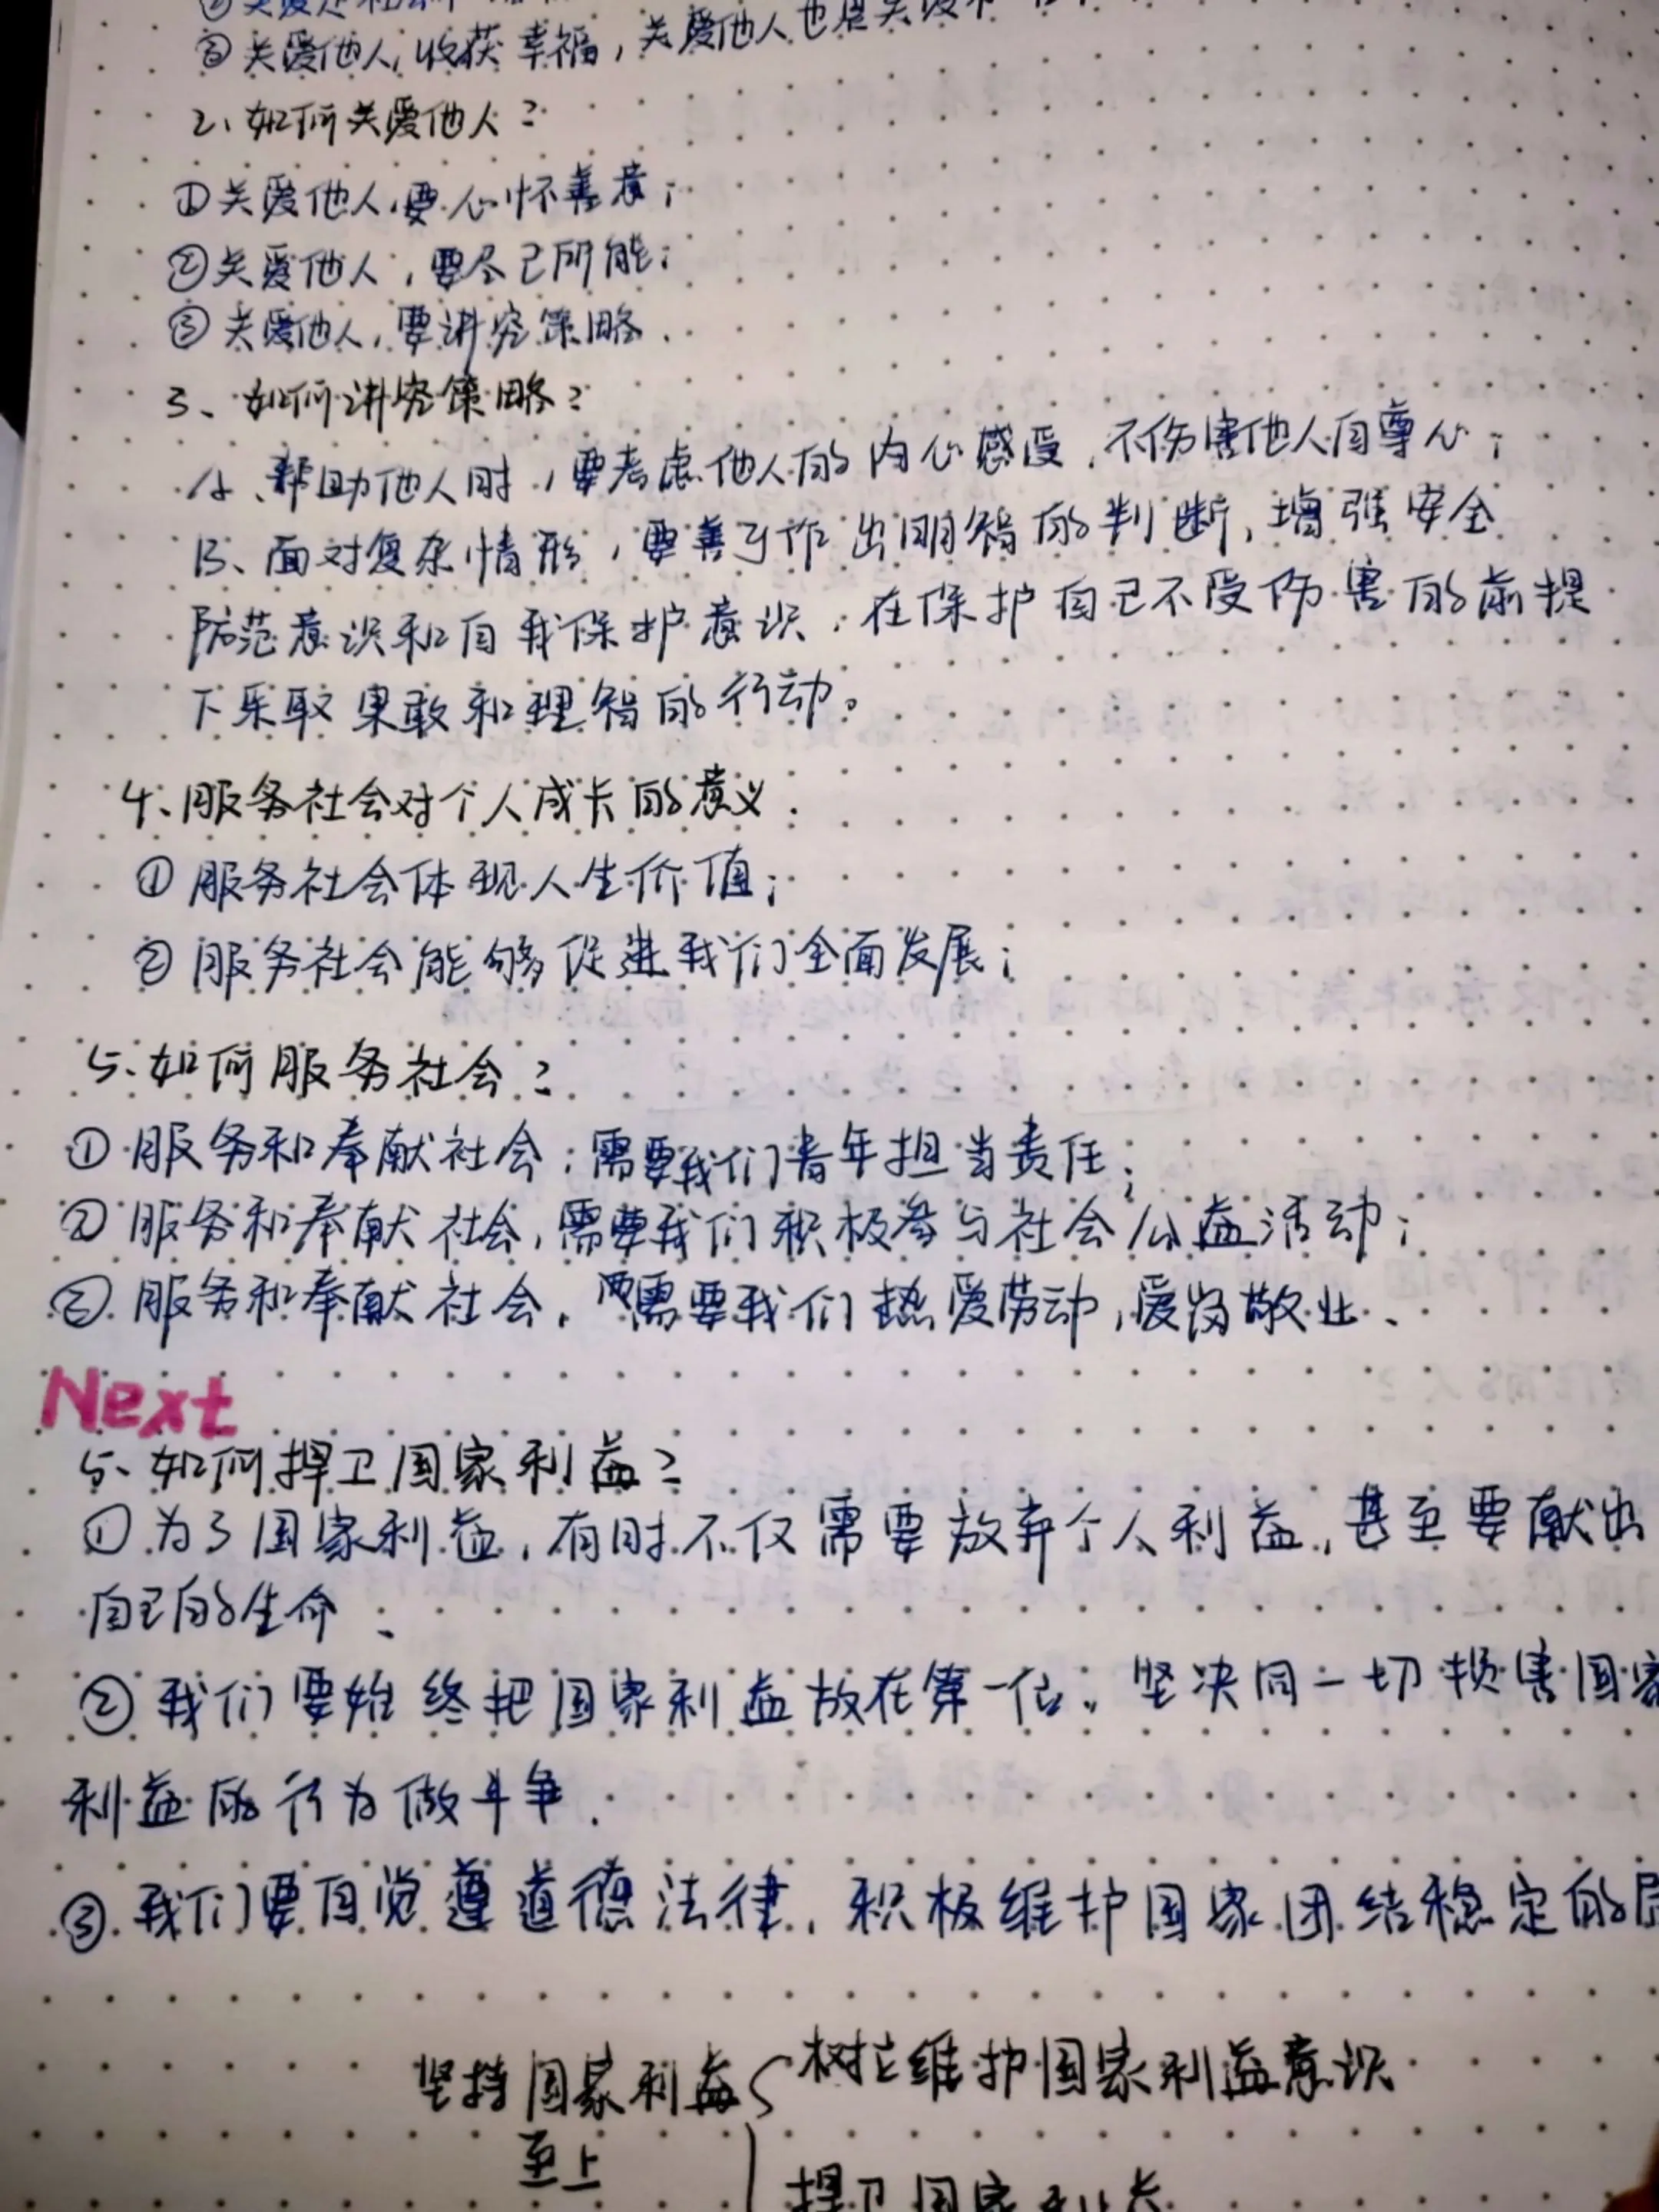 ②关爱是社会
③关爱他人,收获幸福,关爱他人也是关
2、如何关爱他人?
①关爱他人,要心怀善意;
②关爱他人,要尽己所能;
③关爱他人,要讲究策略.
3、如何讲究策略?
A、帮助他人时,要考虑他人的内心感受,不伤害他人自尊心;
B、面对复杂情形,要善于作出明智的判断,增强安全
防范意识和自我保护意识,在保护自己不受伤害的前提
下采取果敢和理智的行动。
4、服务社会对个人成长的意义.
①服务社会体现人生价值;
②服务社会能够促进我们全面发展;
5、如何服务社会?
①服务和奉献社会,需要我们青年担当责任;
②服务和奉献社会,需要我们积极参与社会公益活动;
③服务和奉献社会,需要我们热爱劳动,爱岗敬业、
Next
5、如何捍卫国家利益?
①为了国家利益,有时不仅需要放弃个人利益,甚至要献出
自己的生命、
②我们要始终把国家利益放在第一位。坚决同一切损害国家
利益的行为做斗争.
③我们要自觉遵道德法律,积极维护国家团结稳定的局
坚持国家利益 树立维护国家利益意识
至上
捍卫国家利益